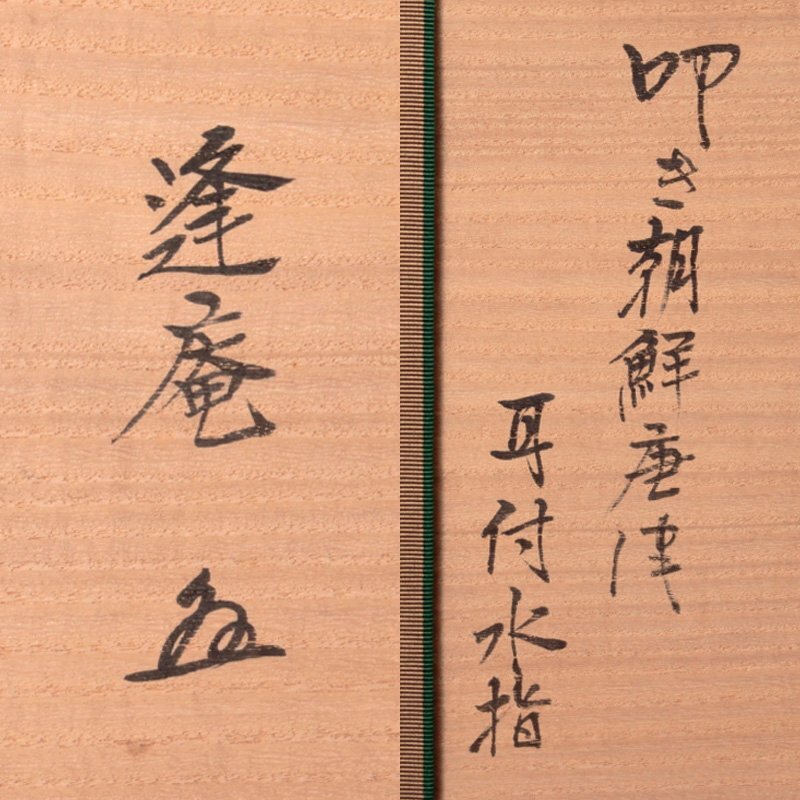 叩き朝鮮唐津
耳付水指
逢庵